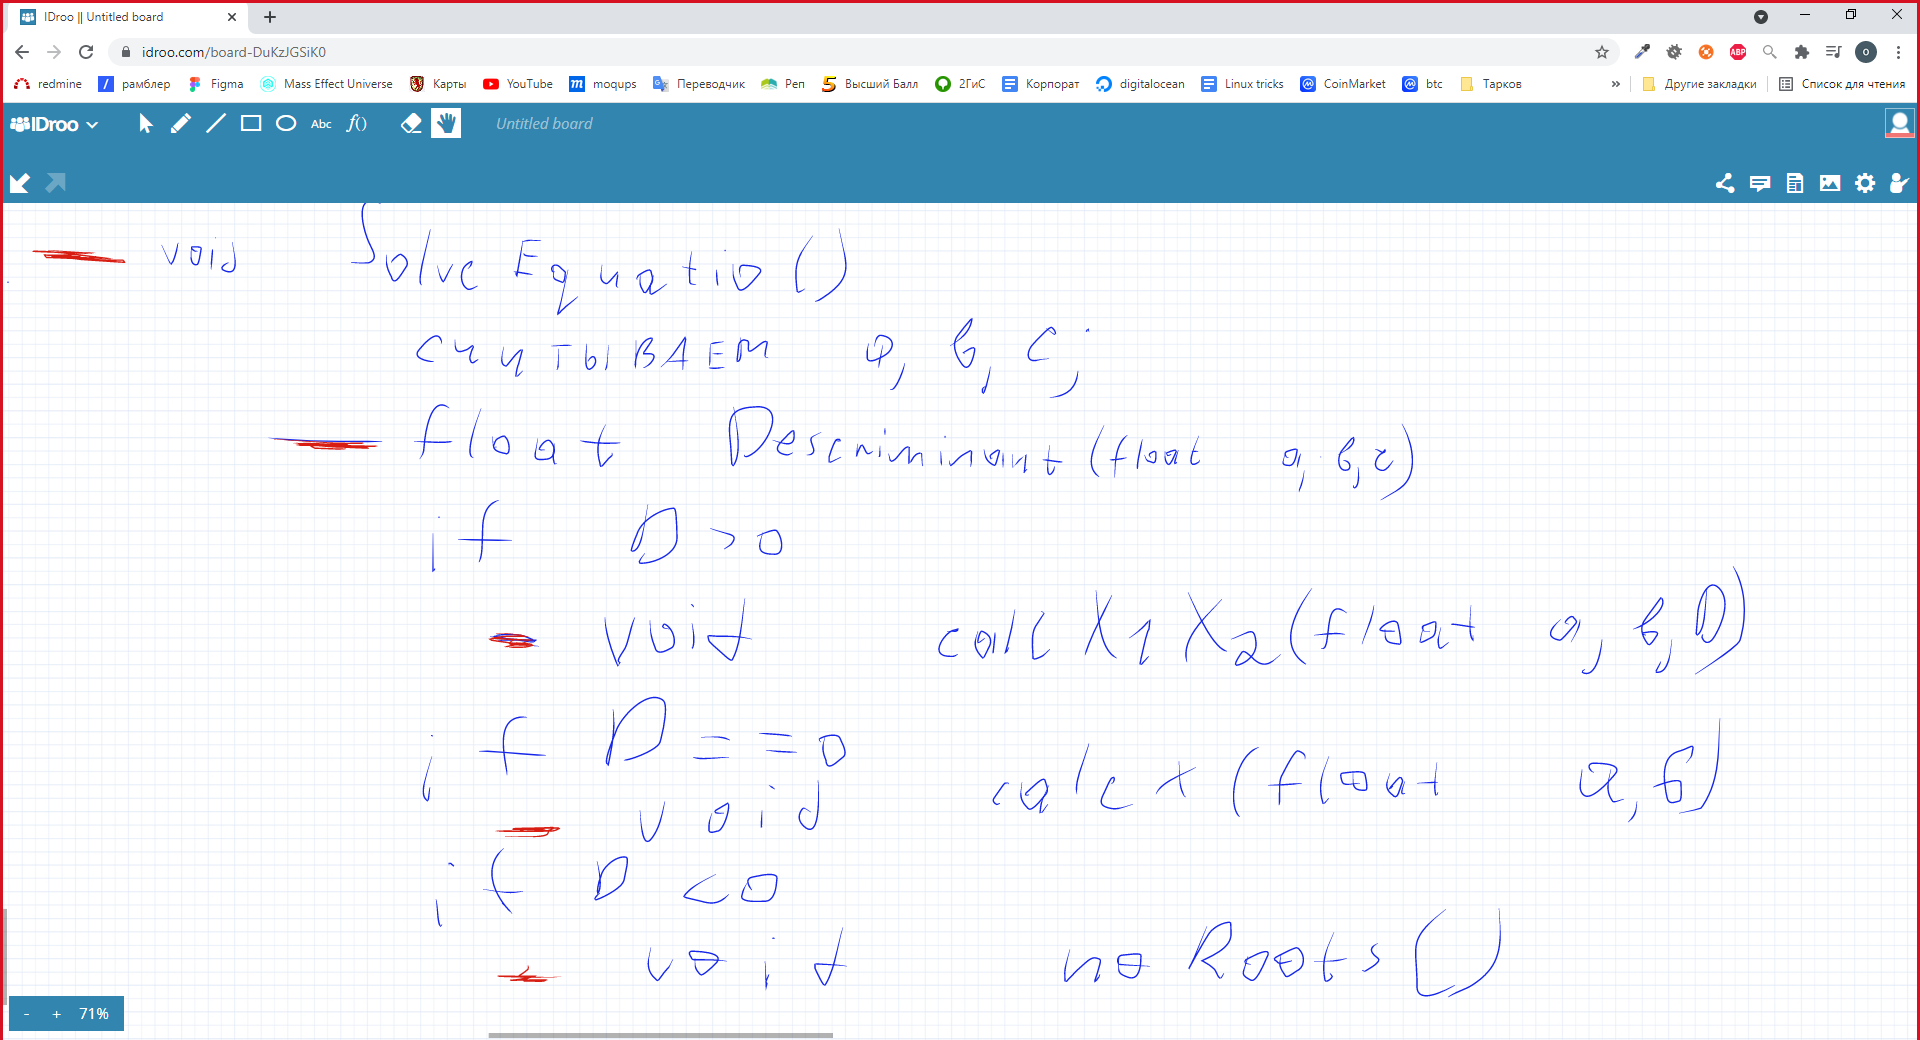 IDroo || Untitled board
idroo.com/board-DuKzJGSiK0
ABP
O
redmine рамблер Figma Mass Effect Universe Карты YouTube moqups Переводчик Реп Высший Балл 2ГиС Корпорат digitalocean Linux tricks CoinMarket btc Тарков » Другие закладки Список для чтения
IDroo Abc f() Untitled board
void Solve Equatio()
считываем a, b, c;
float Descriminant (float a, b, c)
if D > 0
void calc X1 X2 (float a, b, D)
if D == 0
void calc x (float a, b)
if D < 0
void no Roots ()
- + 71%